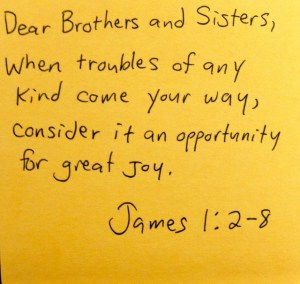 Dear Brothers and Sisters,
When troubles of any
Kind come your way,
Consider it an opportunity
for great Joy.
James 1:2-8